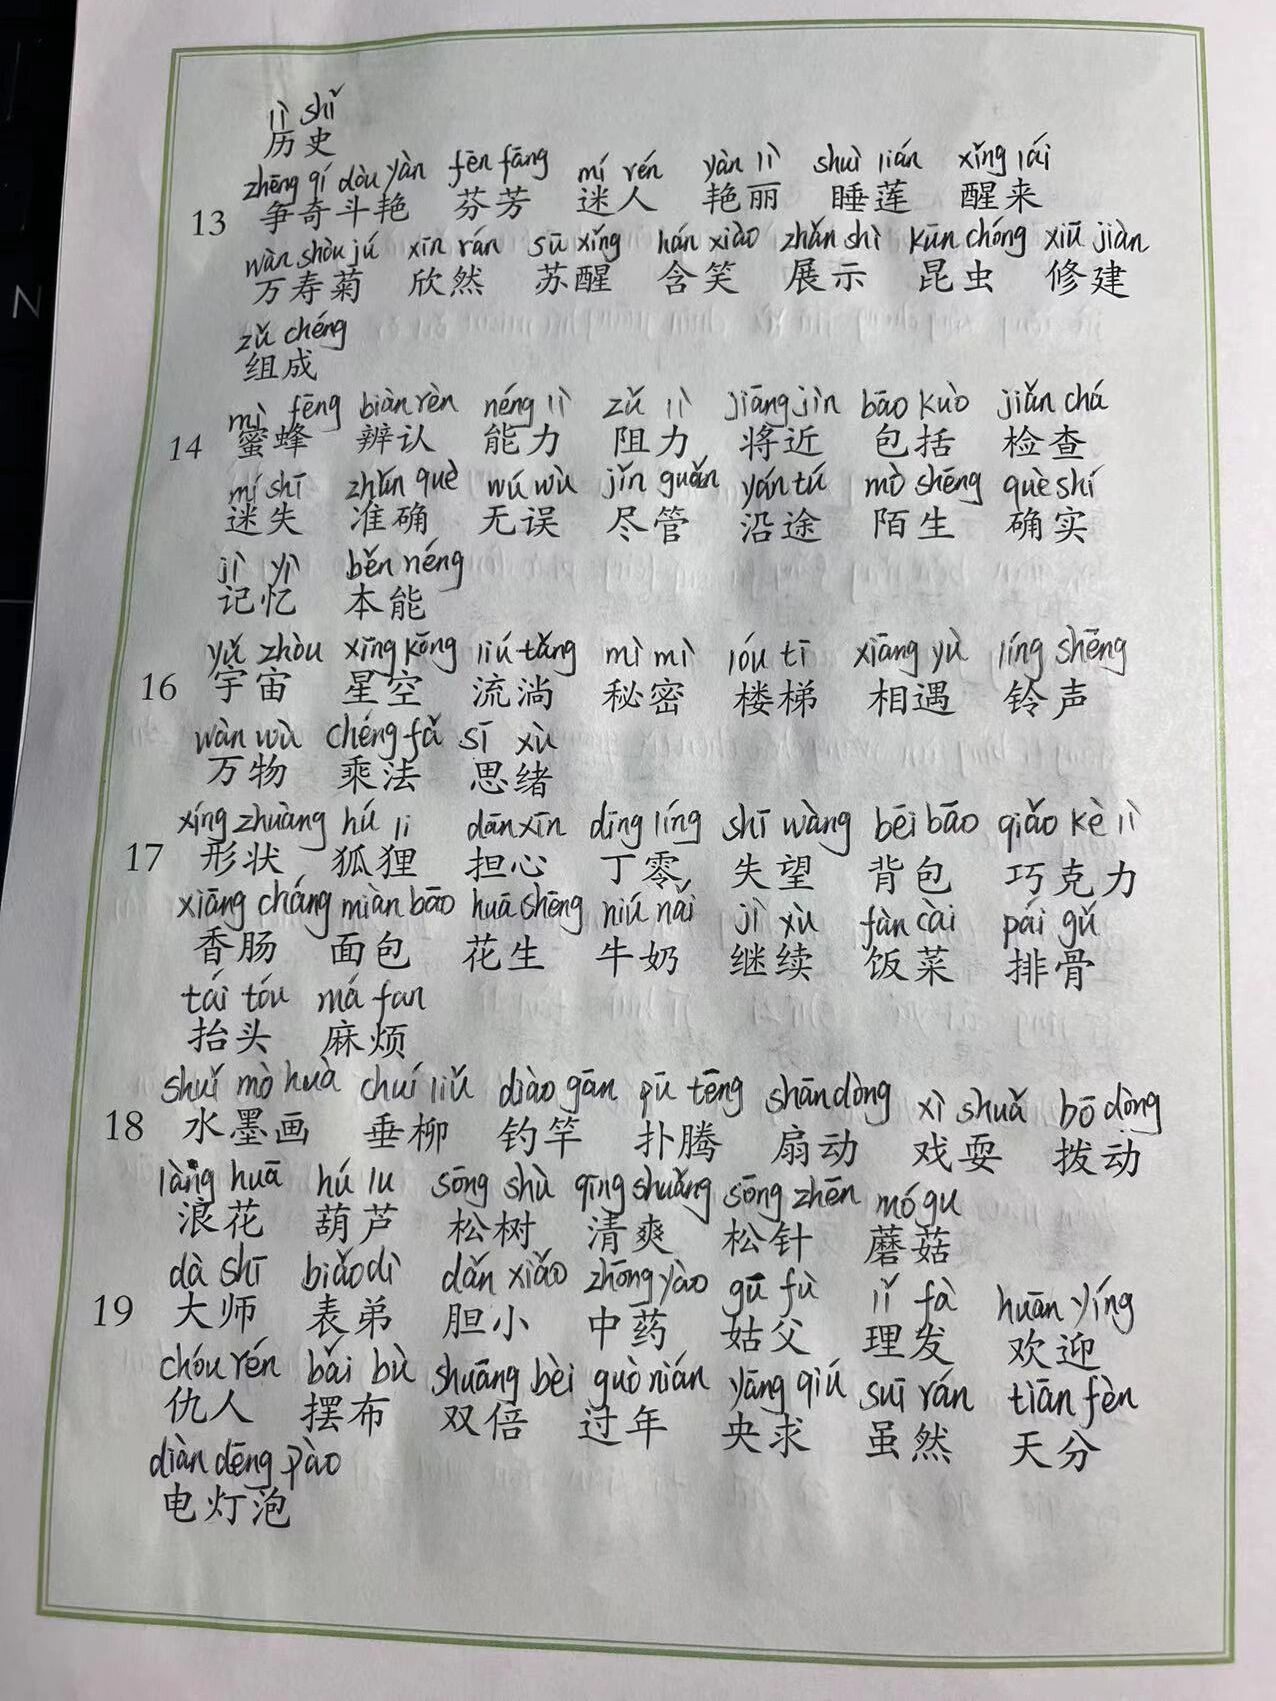 lì shǐ
历史
zhēng qí dòu yàn fēn fāng mí rén yàn lì shuì lián xǐng lái
13 争奇斗艳 芬芳 迷人 艳丽 睡莲 醒来
wàn shòu jú xīn rán sū xǐng hán xiào zhǎn shì kūn chóng xiū jiàn
万寿菊 欣然 苏醒 含笑 展示 昆虫 修建
zǔ chéng
组成
mì fēng biàn rèn néng lì zǔ lì jiāng jìn bāo kuò jiǎn chá
14 蜜蜂 辨认 能力 阻力 将近 包括 检查
mí shī zhǔn què wú wù jǐn guǎn yán tú mò shēng què shí
迷失 准确 无误 尽管 沿途 陌生 确实
jì yì běn néng
记忆 本能
yǔ zhòu xīng kōng liú tǎng mì mì lóu tī xiāng yù líng shēng
16 宇宙 星空 流淌 秘密 楼梯 相遇 铃声
wàn wù chéng fǎ sī xù
万物 乘法 思绪
xíng zhuàng hú li dān xīn dīng líng shī wàng bēi bāo qiǎo kè lì
17 形状 狐狸 担心 丁零 失望 背包 巧克力
xiāng cháng miàn bāo huā shēng niú nǎi jì xù fàn cài pái gǔ
香肠 面包 花生 牛奶 继续 饭菜 排骨
tái tóu má fan
抬头 麻烦
shuǐ mò huà chuí liǔ diào gān pū tēng shān dòng xì shuǎ bō dòng
18 水墨画 垂柳 钓竿 扑腾 扇动 戏耍 拨动
làng huā hú lu sōng shù qīng shuǎng sōng zhēn mó gu
浪花 葫芦 松树 清爽 松针 蘑菇
dà shī biǎo dì dǎn xiǎo zhōng yào gū fù lǐ fà huān yíng
19 大师 表弟 胆小 中药 姑父 理发 欢迎
chóu rén bǎi bù shuāng bèi guò nián yāng qiú suī rán tiān fèn
仇人 摆布 双倍 过年 央求 虽然 天分
diàn dēng pào
电灯泡
N